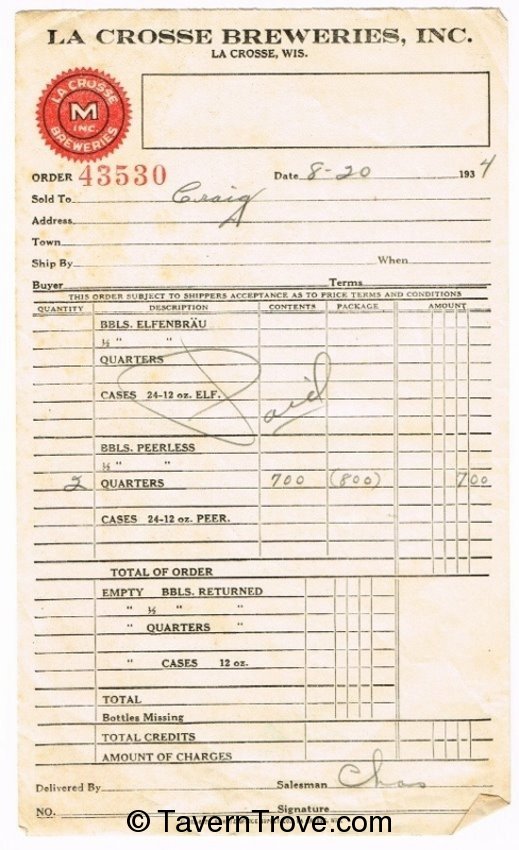 LA CROSSE BREWERIES, INC.
LA CROSSE, WIS.
LA CROSSE
M
INC.
BREWERIES
ORDER 43530 Date 8-20 1934
Sold To Craig
Address
Town
Ship By When
Buyer Terms
THIS ORDER SUBJECT TO SHIPPERS ACCEPTANCE AS TO PRICE TERMS AND CONDITIONS
QUANTITY DESCRIPTION CONTENTS PACKAGE AMOUNT
BBLS. ELFENBRÄU
½ " "
QUARTERS
CASES 24-12 oz. ELF.
Paid
BBLS. PEERLESS
½ " "
2 QUARTERS 700 (800) 700
CASES 24-12 oz. PEER.
TOTAL OF ORDER
EMPTY BBLS. RETURNED
" ½ " "
" QUARTERS "
" CASES 12 oz.
TOTAL
Bottles Missing
TOTAL CREDITS
AMOUNT OF CHARGES
Delivered By Salesman Chas
NO. Signature
© TavernTrove.com